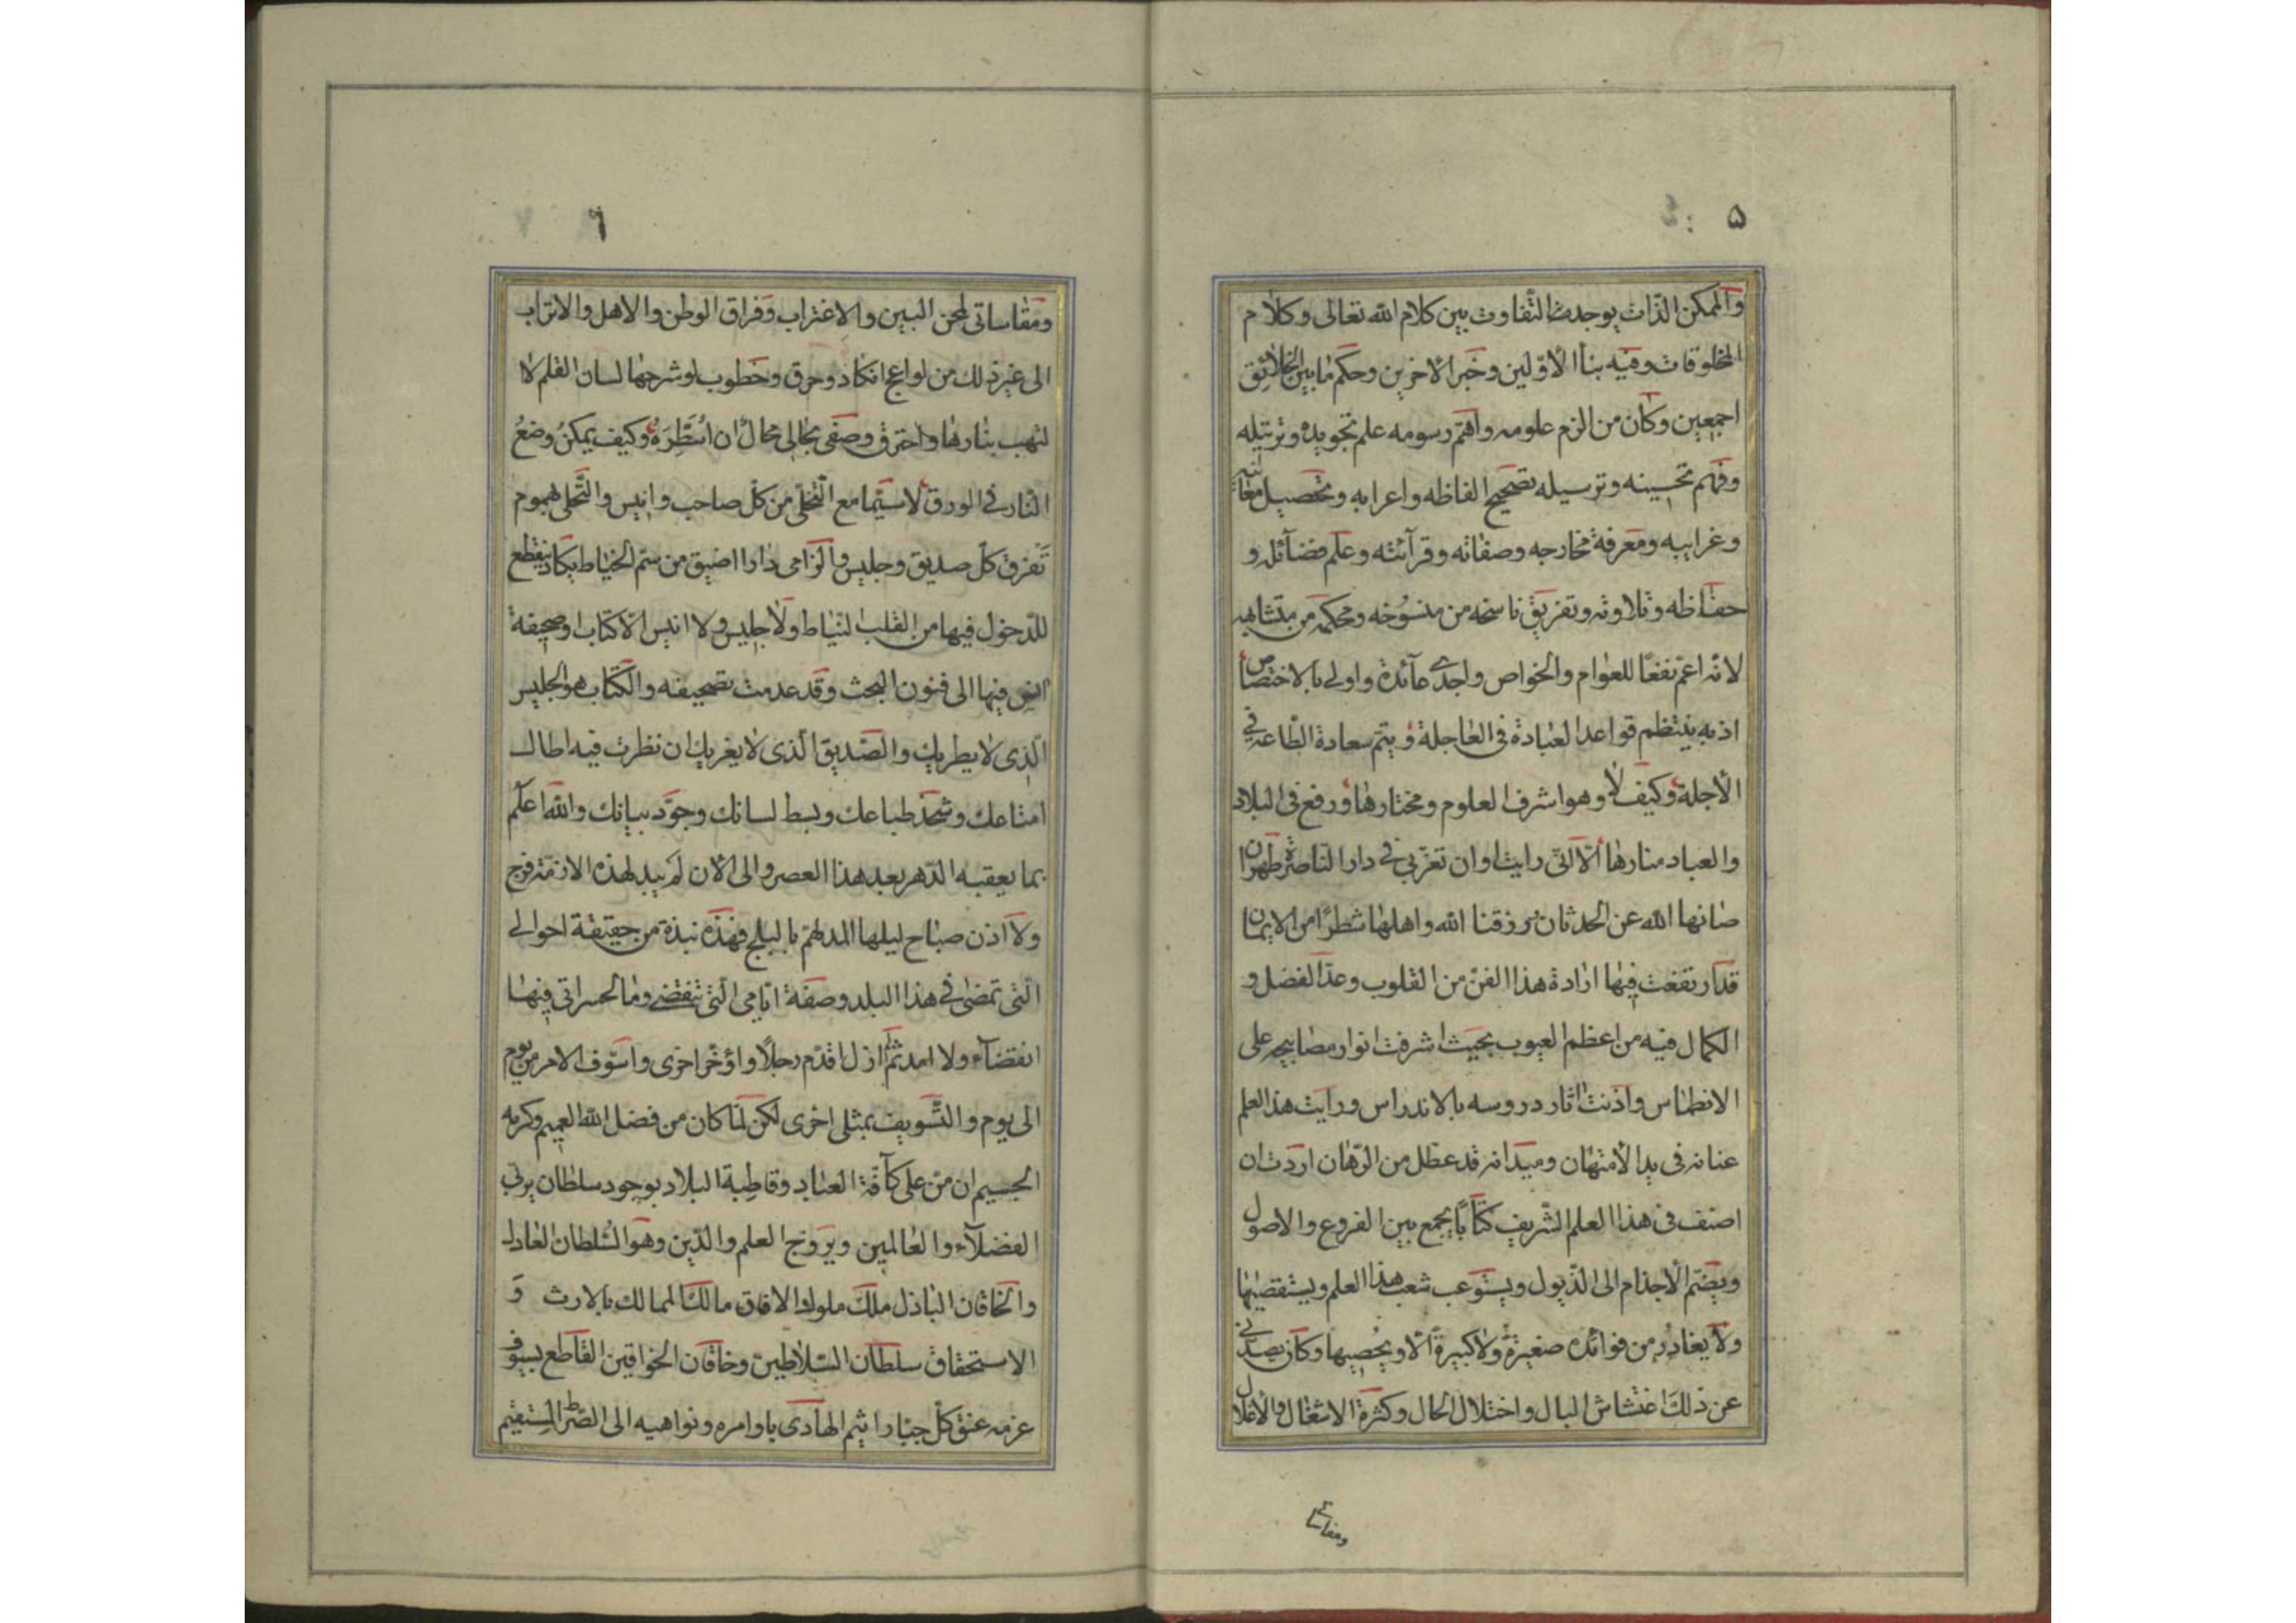 ۵
والممكن الذات يوجد من التفاوت بين كلام الله تعالى وكلام
المخلوقات وفيه بنأ الاوّلين وخبر الاخرين وحكم ما بين الخلائق
اجمعين وكان من الزم علومه واهمّ رسومه علم تجويده وترتيله
وفهم تحسينه وترسيله تصحيح الفاظه واعرابه وتحصيل معانيه
وغرايبه ومعرفة مخارجه وصفاته وقرآئته وعلم فضآئله و
حفّاظه وتلاوته وتفريق ناسخه من منسوخه ومحكمه من متشابهه
لانّه اعمّ نفعًا للعوام والخواص واجدى عآئدة واولى بالاختصاص
اذ به ينتظم قواعد العبادة فى العاجلة ويتمّ سعادة الطّاعة في
الأجلة وكيف لا وهو اشرف العلوم ومختارها ورفع فى البلاد
والعباد منارها الّا انّى رايت اوان تغرّبي في دار الناصرة طهران
صانها الله عن الحدثان ورزقنا الله واهلها شطرًا من الايمان
قد ارتفعت فيها ارادة هذا الفنّ من القلوب وعدّ الفضل و
الكمال فيه من اعظم العيوب بحيث اشرفت انوار مصابيحه على
الانطماس واذنت اثار دروسه بالاندراس ورايت هذا العلم
عنانه فى يد الأمتهان وميدانه قد عطّل من الرّهان اردت ان
اصنف فى هذا العلم الشّريف كتابًا يجمع بين الفروع والاصول
ويضمّ الاجذام الى الذّيول ويستوعب شعب هذا العلم ويستقصيها
ولا يغادر من فوائده صغيرة ولا كبيرة الّا ويحصيها وكان يصدّنى
عن ذلك اغتشاش البال واختلال الحال وكثرة الاشغال والأغلال
ومقاساتى
۶
ومقاساتى لمحن البين والاغتراب وفراق الوطن والاهل والاتراب
الى غير ذلك من لواعج انكاد وحرق وخطوب لو شرحها لسان القلم لا
لتهب بنارها واحترق وصفى بحالى محال ان اسطره وكيف يمكن وضع
النار في الورق لاسيّما مع التّخلّى من كلّ صاحب وانيس والتّحلى بهموم
تفرق كلّ صديق وجليس والزامى دارا اضيق من سمّ الخياط يكاد ينقطع
للدخول فيها من القلب النياط ولا جليس ولا انيس الّا كتاب او صحيفة
انس فيها الى فنون البحث وقد عدمت تصحيفه والكتاب هو الجليس
الّذى لا يطريك والصّديق الّذى لا يغريك ان نظرت فيه اطال
امتاعك وشحذ طباعك وبسط لسانك وجوّد بيانك والله اعلم
بما يعقبه الدّهر بعد هذا العصر والى الأن لم يبد لهذه الازمة فرج
ولا اذن صباح ليلها المدلهمّ بالبلج فهذه نبذة من حقيقة احوالي
الّتى تمضى في هذا البلد وصفة ايّامى الّتى تنقضى وما لحسراتى فيها
انقضآء ولا امد ثمّ ازل اقدّم رجلًا واؤخّر اخرى واسوّف الامر من يوم
الى يوم والتّسويف بمثلى احرى لكن لمّا كان من فضل الله العميم وكرمه
الجسيم ان منّ على كآفّة العباد وقاطبة البلاد بوجود سلطان يربّى
الفضلآء والعالمين ويروّج العلم والدّين وهو السّلطان العادل
والخاقان الباذل ملك ملوك الافاق مالك الممالك بالارث و
الاستحقاق سلطان السّلاطين وخاقان الخواقين القاطع بسيوف
عزمه عنق كلّ جبّار اثيم الهادى باوامره ونواهيه الى الصّراط المستقيم